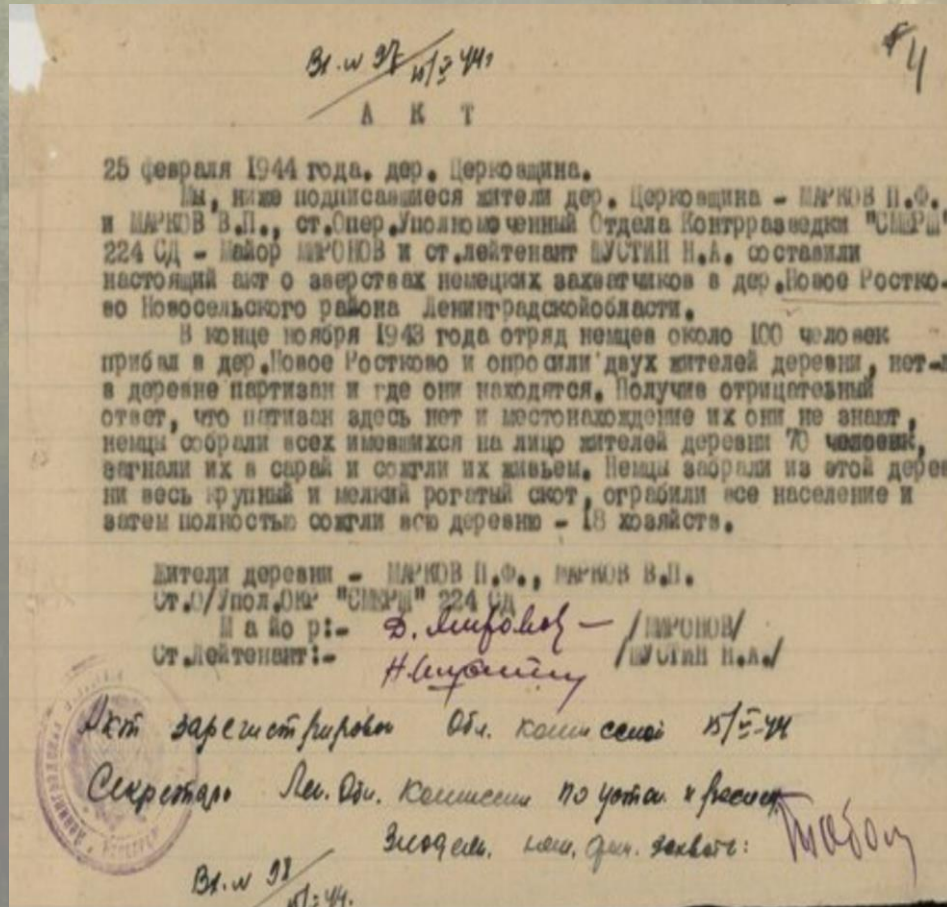 Вх. № 97
15/V 44г
4
А К Т
25 февраля 1944 года. дер. Церковщина.
Мы, ниже подписавшиеся жители дер. Церковщина - МАРКОВ П.Ф.
и МАРКОВ В.П., ст.Опер.Уполномоченный Отдела Контрразведки "СМЕРШ"
224 СД - Майор МИРОНОВ и ст.лейтенант ШУСТИН Н.А. составили
настоящий акт о зверствах немецких захватчиков в дер.Новое Ростко-
во Новосельского района Ленинградскойобласти.
В конце ноября 1943 года отряд немцев около 100 человек
прибыл в дер.Новое Ростково и опросили двух жителей деревни, нет-л
в деревне партизан и где они находятся. Получив отрицательный
ответ, что патизан здесь нет и местонахождение их они не знают,
немцы собрали всех имевшихся на лицо жителей деревни 70 человек,
загнали их в сарай и сожгли их живьем. Немцы забрали из этой дерев
ни весь крупный и мелкий рогатый скот, ограбили все население и
затем полностью сожгли всю деревню - 18 хозяйств.
Жители деревни - МАРКОВ П.Ф., МАРКОВ В.П.
Ст.О/Упол.ОКР "СМЕРШ" 224 СД
М а йо р:- Д. Миронов - /МИРОНОВ/
Ст.Лейтенант:- Н Шустин /ШУСТИН Н.А./
Акт зарегистрирован Обл. комиссией 15/V-44
Секретарь Лен. Обл. Комиссии по устан. и рассл.
Злодеян. нем. фаш. захватч:
Вх. № 98
15/V 44.